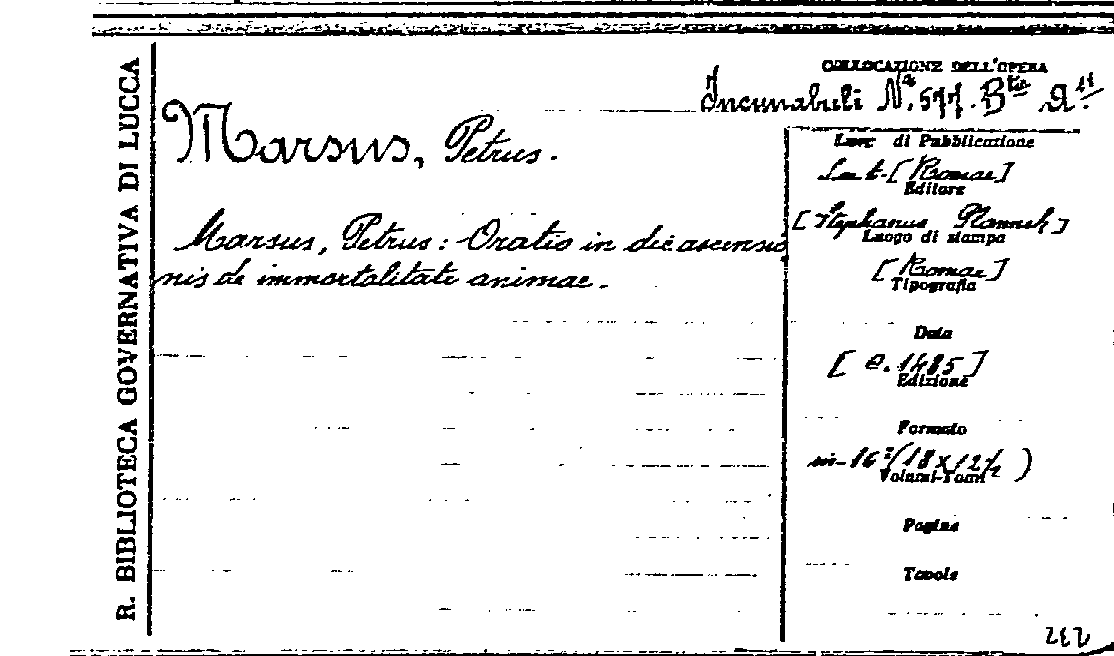 R. BIBLIOTECA GOVERNATIVA DI LUCCA
COLLOCAZIONE DELL'OPERA
Incunabuli Nº. 577. Bta
Marsus, Petrus.
Marsus, Petrus: Oratio in die ascensio
nis de immortalitate animae.
Luogo di Pubblicazione
[Romae]
Editore
[Stephanus Plannck]
Luogo di stampa
[Romae]
Tipografia
Data
[c. 1485]
Edizione
Formato
in-16º (18 x 12½)
Volumi-Tomi
Pagine
Tavole
232